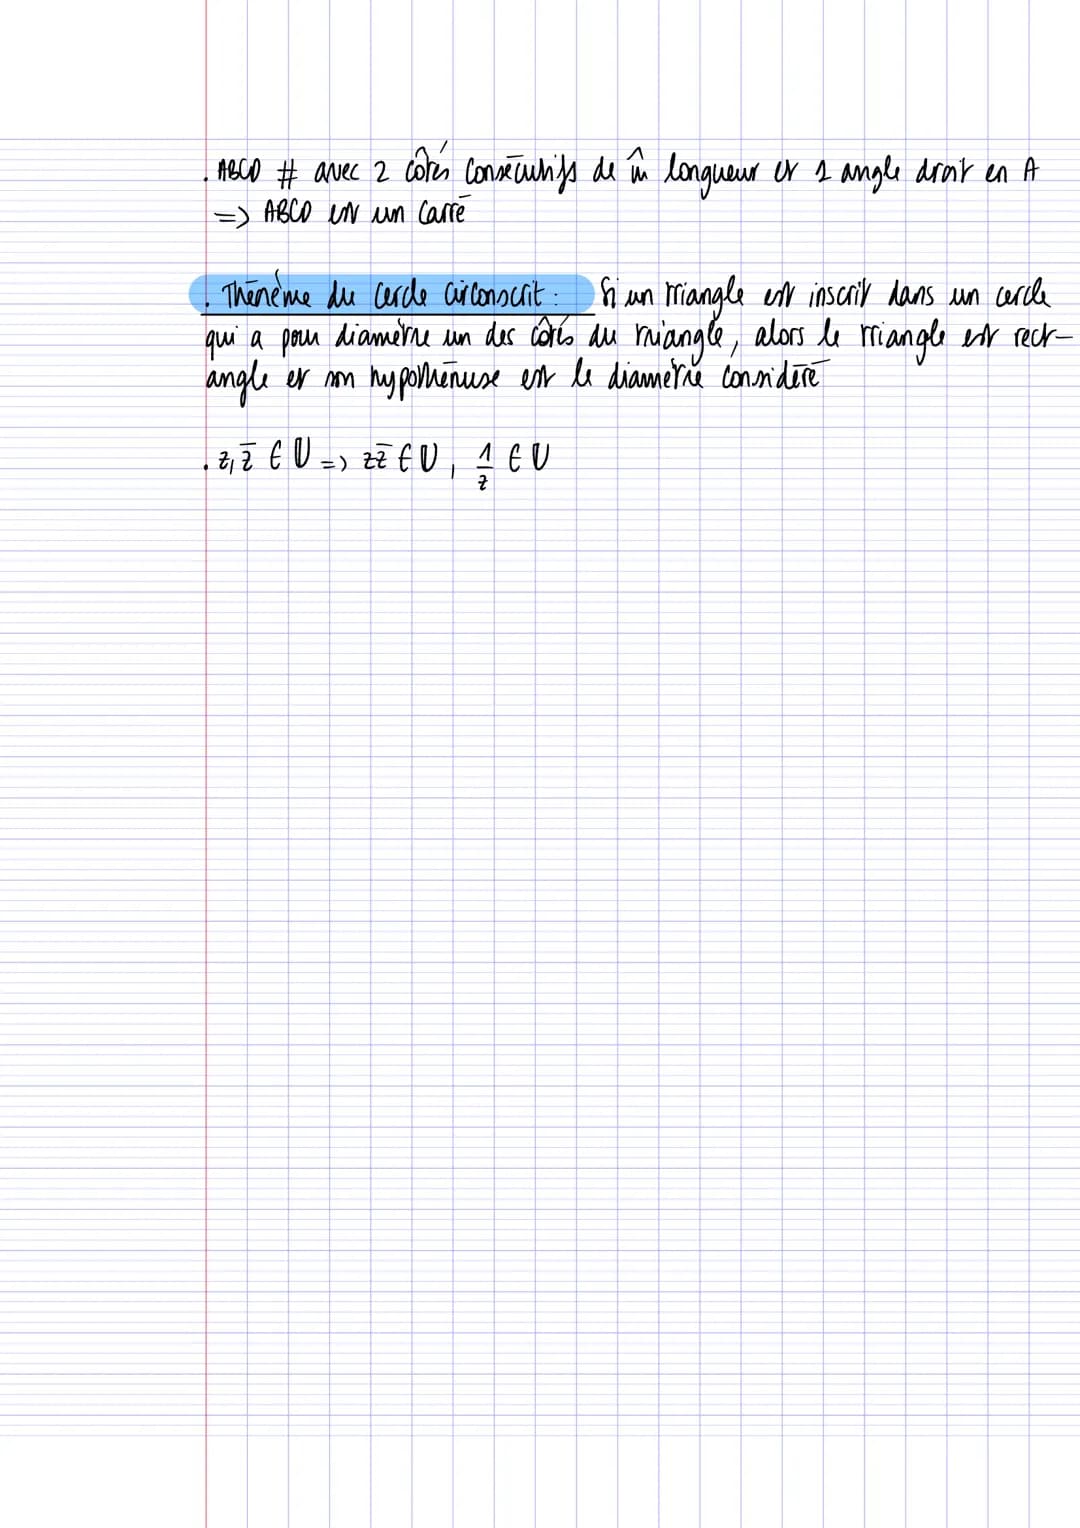 . ABCD # avec 2 côtés consécutifs de m̂ longueur et 1 angle droit en A
=> ABCD est un carré
. Théorème du cercle circonscrit : Si un triangle est inscrit dans un cercle
qui a pour diamètre un des côtés du triangle, alors le triangle est rect-
angle et son hypoténuse est le diamètre considéré
. z, z̄ ∈ U => zz̄ ∈ U, 1/z ∈ U